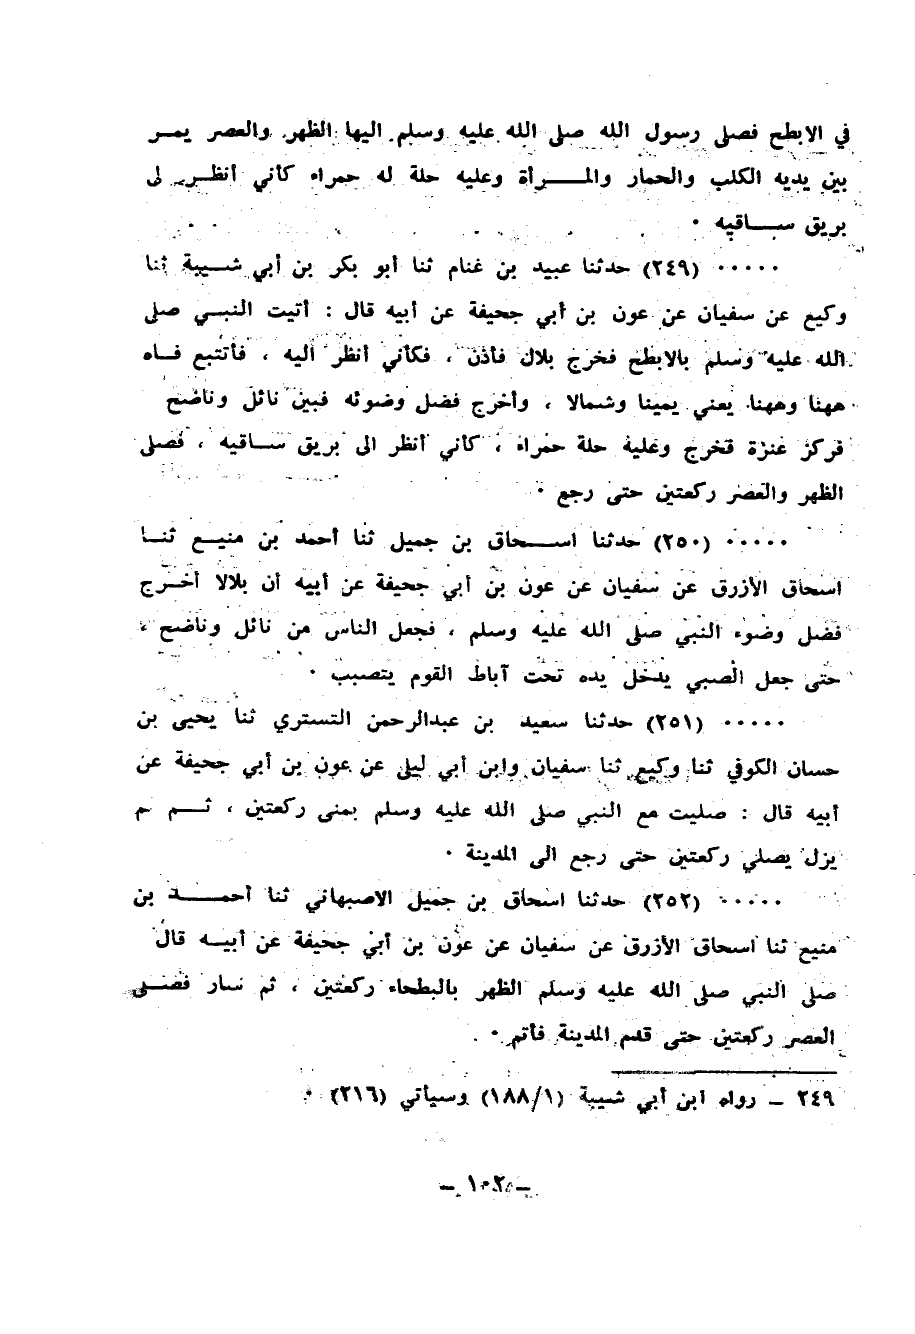 في الابطح فصلى رسول الله صلى الله عليه وسلم اليها الظهر والعصر يمر
بين يديه الكلب والحمار والمرأة وعليه حلة له حمراء كأني أنظر لى
بريق ساقيه ٠
٠٠٠٠٠ (٢٤٩) حدثنا عبيد بن غنام ثنا أبو بكر بن أبي شيبة ثنا
وكيع عن سفيان عن عون بن أبي جحيفة عن أبيه قال : أتيت النبي صلى
الله عليه وسلم بالابطح فخرج بلال فأذن ، فكأني أنظر اليه ، فأتتبع فاه
ههنا وههنا يعني يمينا وشمالا ، وأخرج فضل وضوئه فبين نائل وناضح
فركز عنزة فخرج وعليه حلة حمراء ، كأني أنظر الى بريق ساقيه ، فصلى
الظهر والعصر ركعتين حتى رجع ٠
٠٠٠٠٠ (٢٥٠) حدثنا اسحاق بن جميل ثنا أحمد بن منيع ثنا
اسحاق الأزرق عن سفيان عن عون بن أبي جحيفة عن أبيه أن بلالا أخرج
فضل وضوء النبي صلى الله عليه وسلم ، فجعل الناس من نائل وناضح ،
حتى جعل الصبي يدخل يده تحت آباط القوم يتصبب ٠
٠٠٠٠٠ (٢٥١) حدثنا سعيد بن عبدالرحمن التستري ثنا يحيى بن
حسان الكوفي ثنا وكيع ثنا سفيان وابن أبي ليلى عن عون بن أبي جحيفة عن
أبيه قال : صليت مع النبي صلى الله عليه وسلم بمنى ركعتين ، ثم لم
يزل يصلي ركعتين حتى رجع الى المدينة ٠
٠٠٠٠٠ (٢٥٢) حدثنا اسحاق بن جميل الاصبهاني ثنا أحمد بن
منيع ثنا اسحاق الأزرق عن سفيان عن عون بن أبي جحيفة عن أبيه قال
صلى النبي صلى الله عليه وسلم الظهر بالبطحاء ركعتين ، ثم سار فصلى
العصر ركعتين حتى قدم المدينة فأتم ٠
٢٤٩ ــ رواه ابن أبي شيبة (١٨٨/١) وسيأتي (٢١٦) ٠